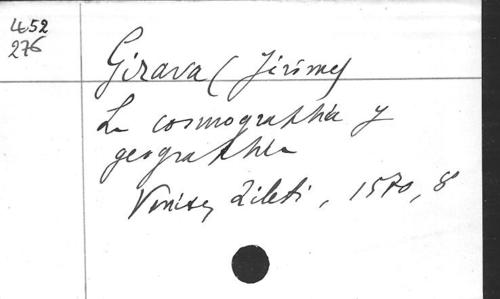 452
276
Girava (Jirôme)
La cosmographia y
geographia
Venise, Zileti, 1570, 8